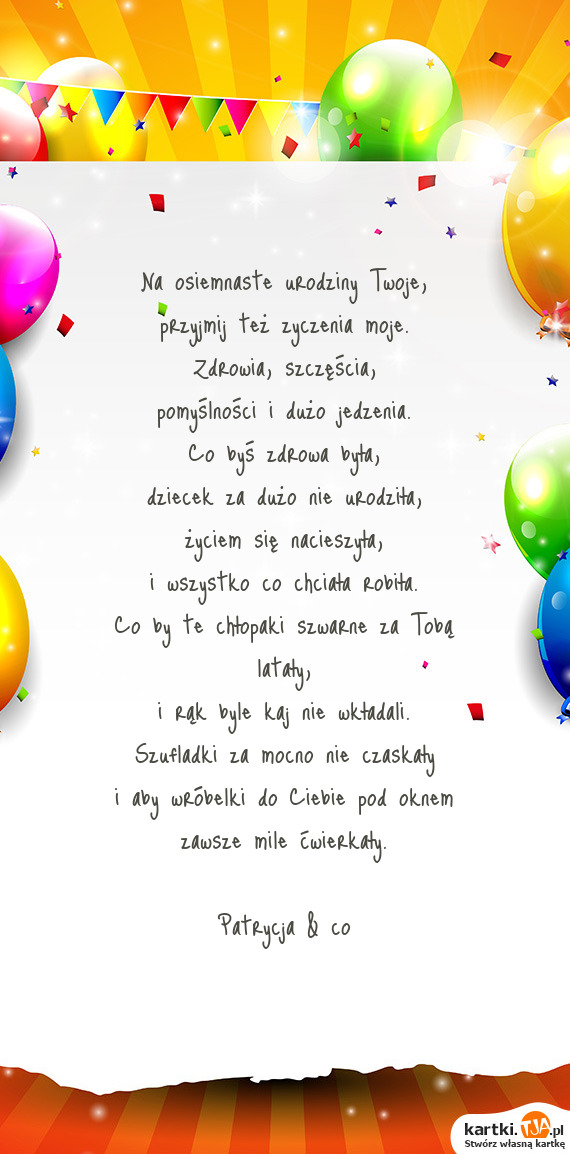 Na osiemnaste urodziny Twoje,
przyjmij też zyczenia moje.
Zdrowia, szczęścia,
pomyślności i dużo jedzenia.
Co byś zdrowa była,
dziecek za dużo nie urodziła,
życiem się nacieszyła,
i wszystko co chciała robiła.
Co by te chłopaki szwarne za Tobą
latały,
i rąk byle kaj nie wkładali.
Szufladki za mocno nie czaskały
i aby wróbelki do Ciebie pod oknem
zawsze mile ćwierkały.
Patrycja & co
kartki.TJA.pl
Stwórz własną kartkę